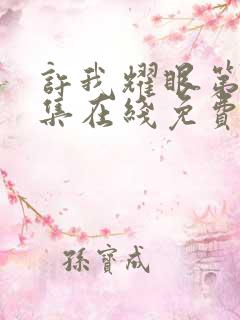 許我耀眼第
集在綫免費
孫寶成